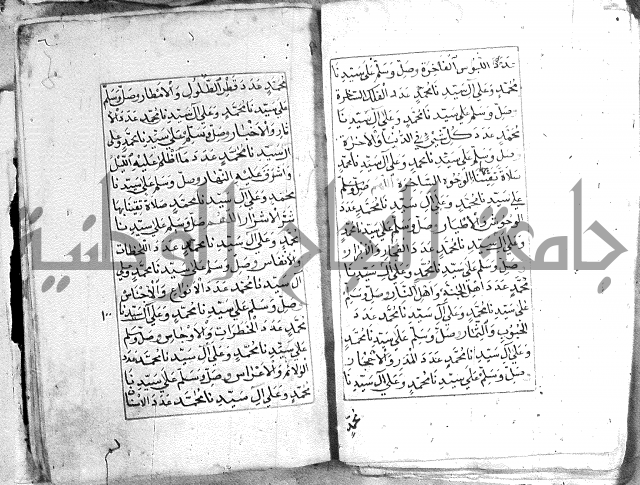 عدد اللبوس الفاخرة وصل وسلم على سيدنا
محمد وعلى آل سيدنا محمد عدد الفلك
وصل وسلم على سيدنا محمد وعلى آل سيدنا
محمد عدد كل شيء في الدنيا والآخرة
وصل وسلم على سيدنا محمد وعلى آل سيدنا محمد
صلاة الوجوه وصل وسلم
على سيدنا محمد وعلى آل سيدنا محمد عدد
الوحوش والأطيار وصل وسلم على سيدنا محمد
وعلى آل سيدنا محمد عدد الفجار والأبرار
وصل وسلم على سيدنا محمد وعلى آل سيدنا
محمد عدد أهل الجنة وأهل النار وصل وسلم
على سيدنا محمد وعلى آل سيدنا محمد عدد
الحبوب والثمار وصل وسلم على سيدنا محمد
وعلى آل سيدنا محمد عدد المدر والأحجار
وصل وسلم على سيدنا محمد وعلى آل سيدنا
محمد
محمد عدد قطر الطلول والأمطار وصل وسلم
على سيدنا محمد وعلى آل سيدنا محمد عدد الآ
ثار والأخبار وصل وسلم على سيدنا محمد وعلى
آل سيدنا محمد عدد ما أظلم عليه الليل
وأشرق عليه النهار وصل وسلم على سيدنا
محمد وعلى آل سيدنا محمد صلاة تقينا بها
شر الأشرار وصل وسلم على سيدنا
محمد وعلى آل سيدنا محمد عدد اللحظات
والأنفاس وصل وسلم على سيدنا محمد وعلى
آل سيدنا محمد عدد الأنواع والأجناس
وصل وسلم على سيدنا محمد وعلى آل سيدنا
محمد عدد الخطرات وصل وسلم
على سيدنا محمد وعلى آل سيدنا محمد عدد
الولائم والأعراس وصل وسلم على سيدنا
محمد وعلى آل سيدنا محمد عدد
جامعة النجاح الوطنية